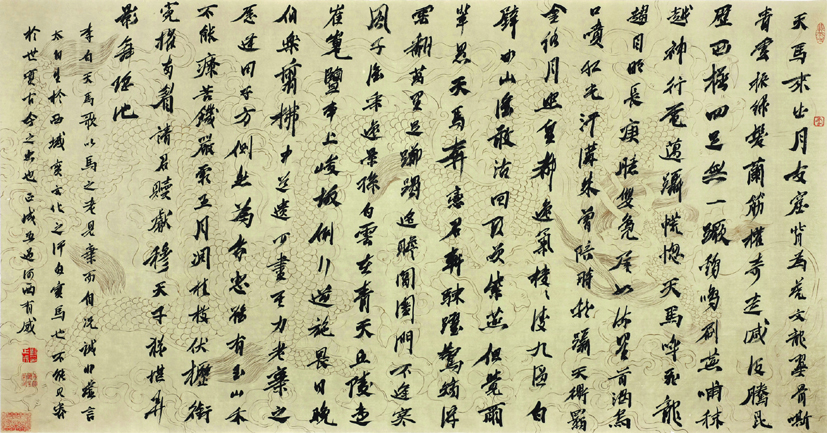 天馬來出月支窟背為虎文龍翼骨嘶
青雲振綠髮蘭筋權奇走滅沒騰昆
歷西極四足無一蹶鷄鳴刷燕晡秣
越神行電邁躡慌惚天馬呼飛龍
趨目明長庚臆雙鳧尾如流星首渴烏
口噴紅光汗溝朱曾陪時龍躡天衢羈
金絡月照皇都逸氣棱〻凌九區白
璧如山誰敢沽回頭笑紫燕但覺爾
輩愚天馬奔戀君軒駷躍驚矯浮
雲翻萬里足躑躅遥瞻閶闔門不逢寒
風子誰采逸景孫白雲在青天丘陵遠
崔嵬鹽車上峻坂倒行逆施畏日晚
伯樂翦拂中道遺少盡其力老棄之
愿逢田子方惻然為我悲雖有玉山禾
不能療苦饑嚴霜五月凋桂枝伏櫪銜
冤摧兩眉請君贖獻穆天子猶堪弄
影舞瑶池
李白天馬歌以馬之老見棄而自況誠非虛言
太白生於西域實文化之汗血寶馬也不能見容
於世實古今之也過河西有感